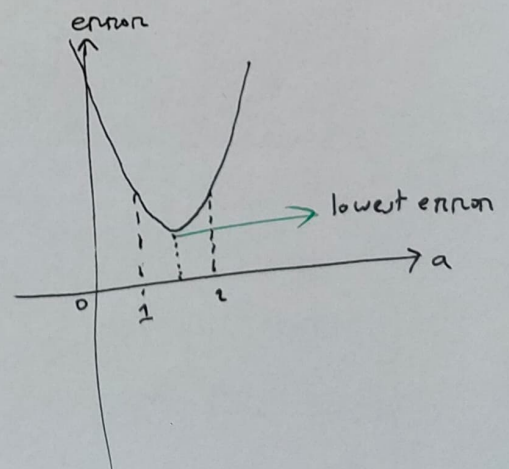 error
lowest error
a
0
1
2